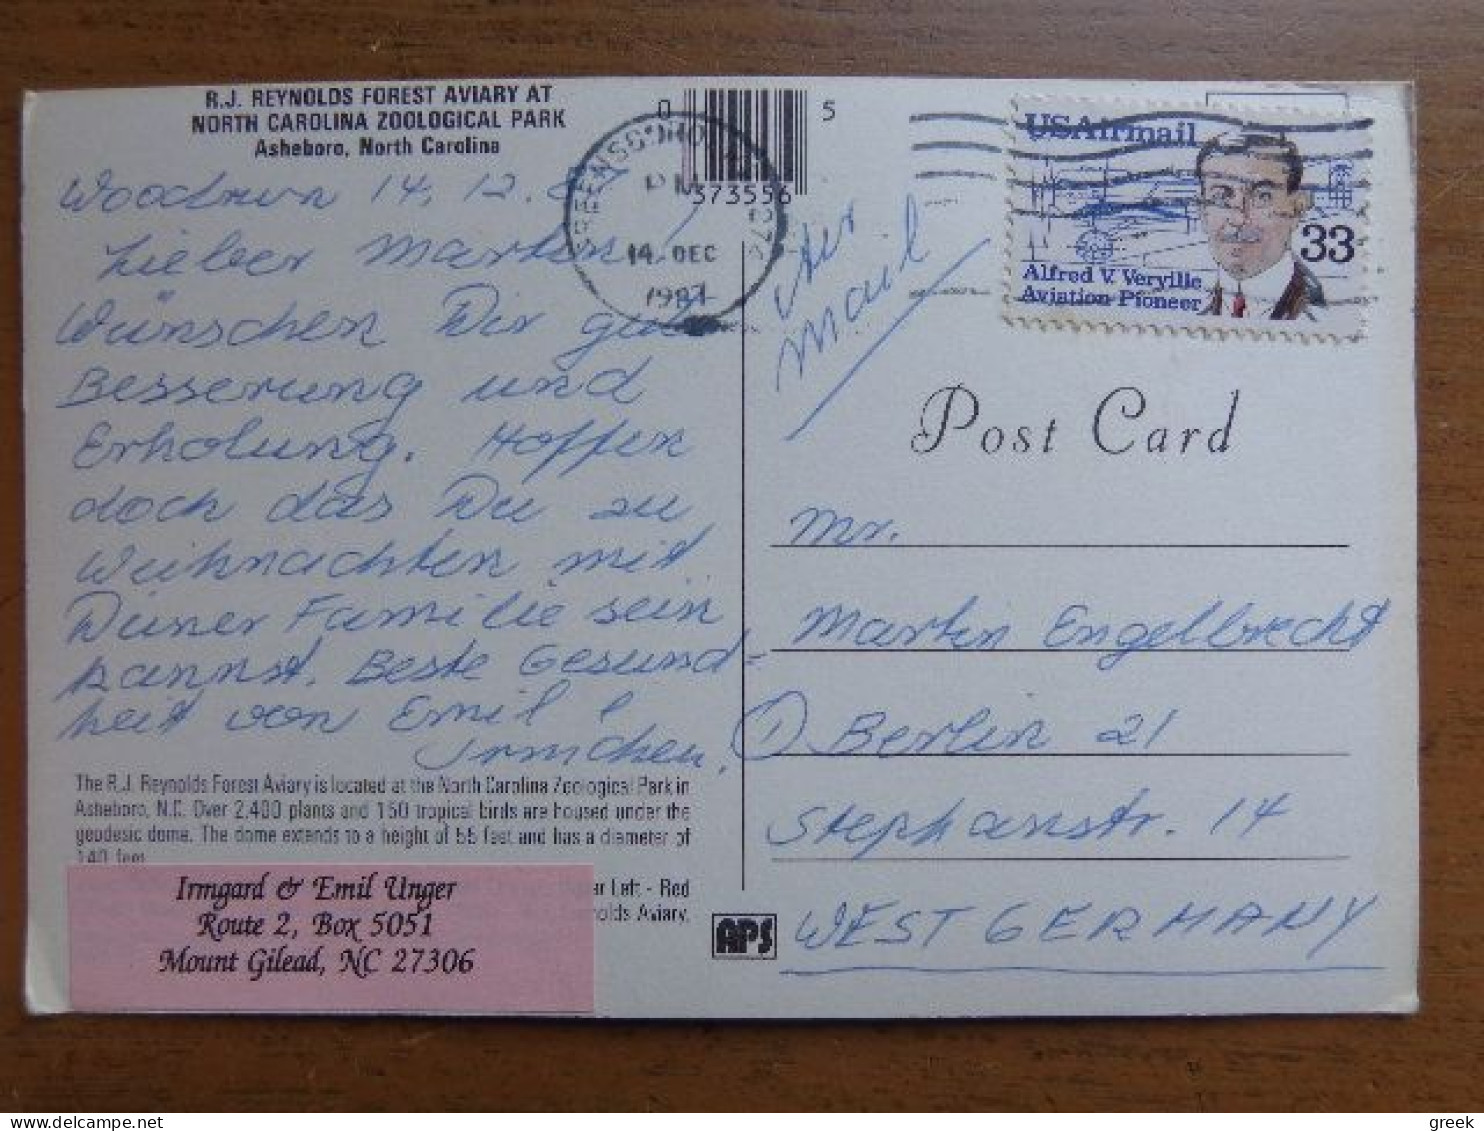 R.J. REYNOLDS FOREST AVIARY AT
NORTH CAROLINA ZOOLOGICAL PARK
Asheboro, North Carolina
0 5
373556
Woodrun 14. 12.
Lieber Martin!
Wünschen Dir gute
Besserung und
Erholung. Hoffen
doch das Du zu
Weihnachten mit
Deiner Familie sein
kannst. Beste Gesund=
heit von Emil &
Irmchen.
The R.J. Reynolds Forest Aviary is located at the North Carolina Zoological Park in
Asheboro, N.C. Over 2,400 plants and 150 tropical birds are housed under the
geodesic dome. The dome extends to a height of 55 feet and has a diameter of
140 feet
Left - Red
Aviary.
Irmgard & Emil Unger
Route 2, Box 5051
Mount Gilead, NC 27306
GREENSBORO
PM
14 DEC
1987
Air
Mail
USAirmail
33
Alfred V. Verville
Aviation Pioneer
Post Card
Mr.
Martin Engelbrecht
① Berlin 21
Stephanstr. 14
WEST GERMANY
APS
greek